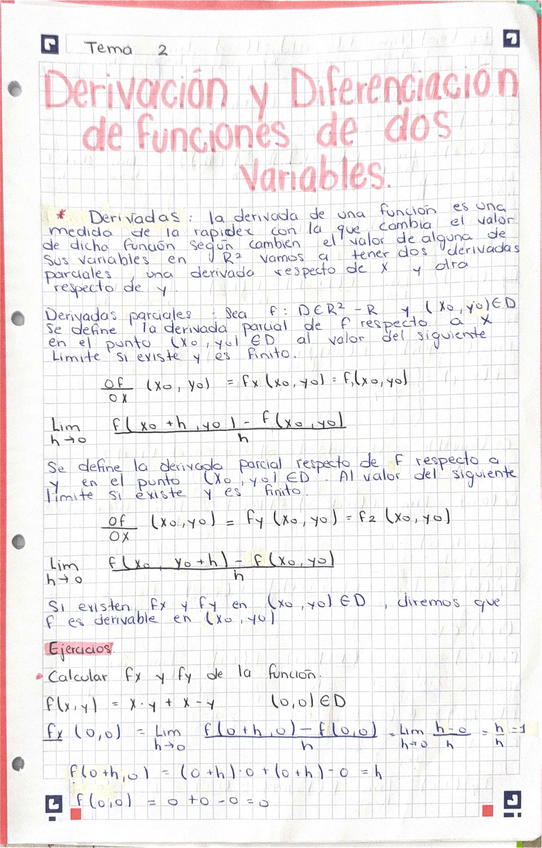 Tema 2
Derivación y Diferenciación
de funciones de dos
Variables.
* Derivadas: la derivada de una función es una
medida de la rapidez con la que cambia el valor
de dicha función según cambien el valor de alguna de
sus variables en R² vamos a tener dos derivadas
parciales, una derivada respecto de x y otra
respecto de y.
Derivadas parciales: Sea f: D∈R² - R y (x0, y0)∈D
Se define la derivada parcial de f respecto a x
en el punto (x0, y0) ∈D al valor del siguiente
Limite si existe y es finito.
∂f/∂x (x0, y0) = fx (x0, y0) = f1(x0, y0)
Lim h→0 f(x0 + h, y0) - f(x0, y0) / h
Se define la derivada parcial respecto de f respecto a
y en el punto (x0, y0) ∈D. Al valor del siguiente
limite si existe y es finito.
∂f/∂x (x0, y0) = fy (x0, y0) = f2 (x0, y0)
Lim h→0 f(x0, y0 + h) - f(x0, y0) / h
Si existen fx y fy en (x0, y0) ∈D, diremos que
f es derivable en (x0, y0)
Ejercicios
• Calcular fx y fy de la función.
f(x,y) = x·y + x - y (0,0)∈D
fx (0,0) = Lim h→0 f(0+h,0) - f(0,0) / h = Lim h→0 h-0 / h = h/h = 1
f(0+h,0) = (0+h)·0 + (0+h) - 0 = h
f(0,0) = 0 + 0 - 0 = 0